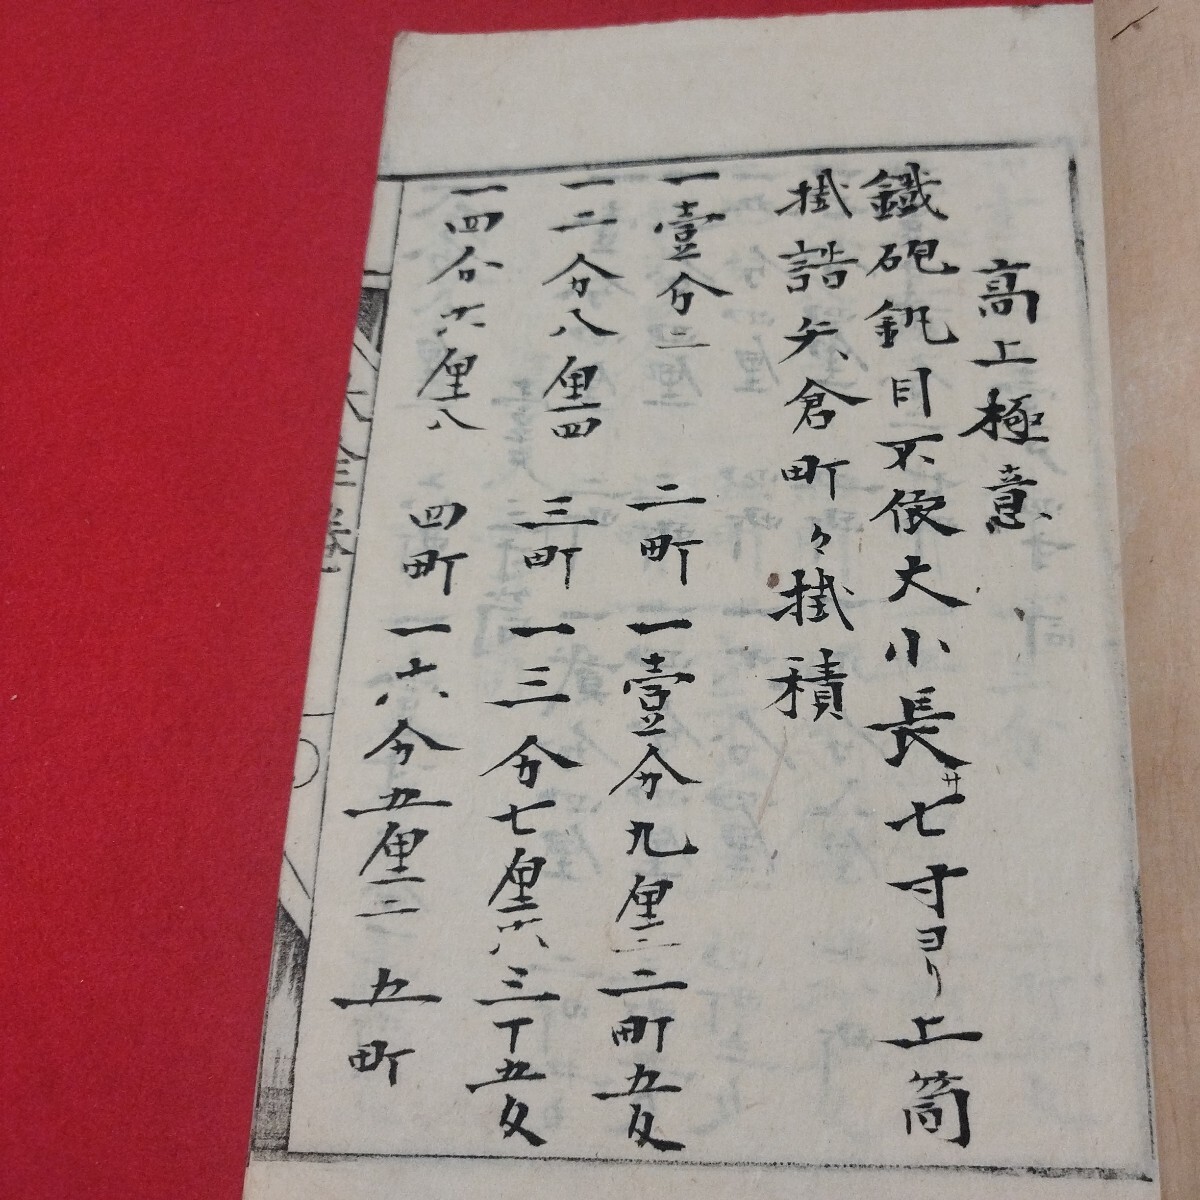 高上極意
鐵砲釩目不依大小長サ七寸ヨリ上筒
掛誥矢倉町々掛積
一壹分二 二町 一壹分九厘二 二町五反
一二分八厘四 三町 一三分七厘六 三丁五反
一四分六厘八 四町 一六分五厘二 五町
大全巻